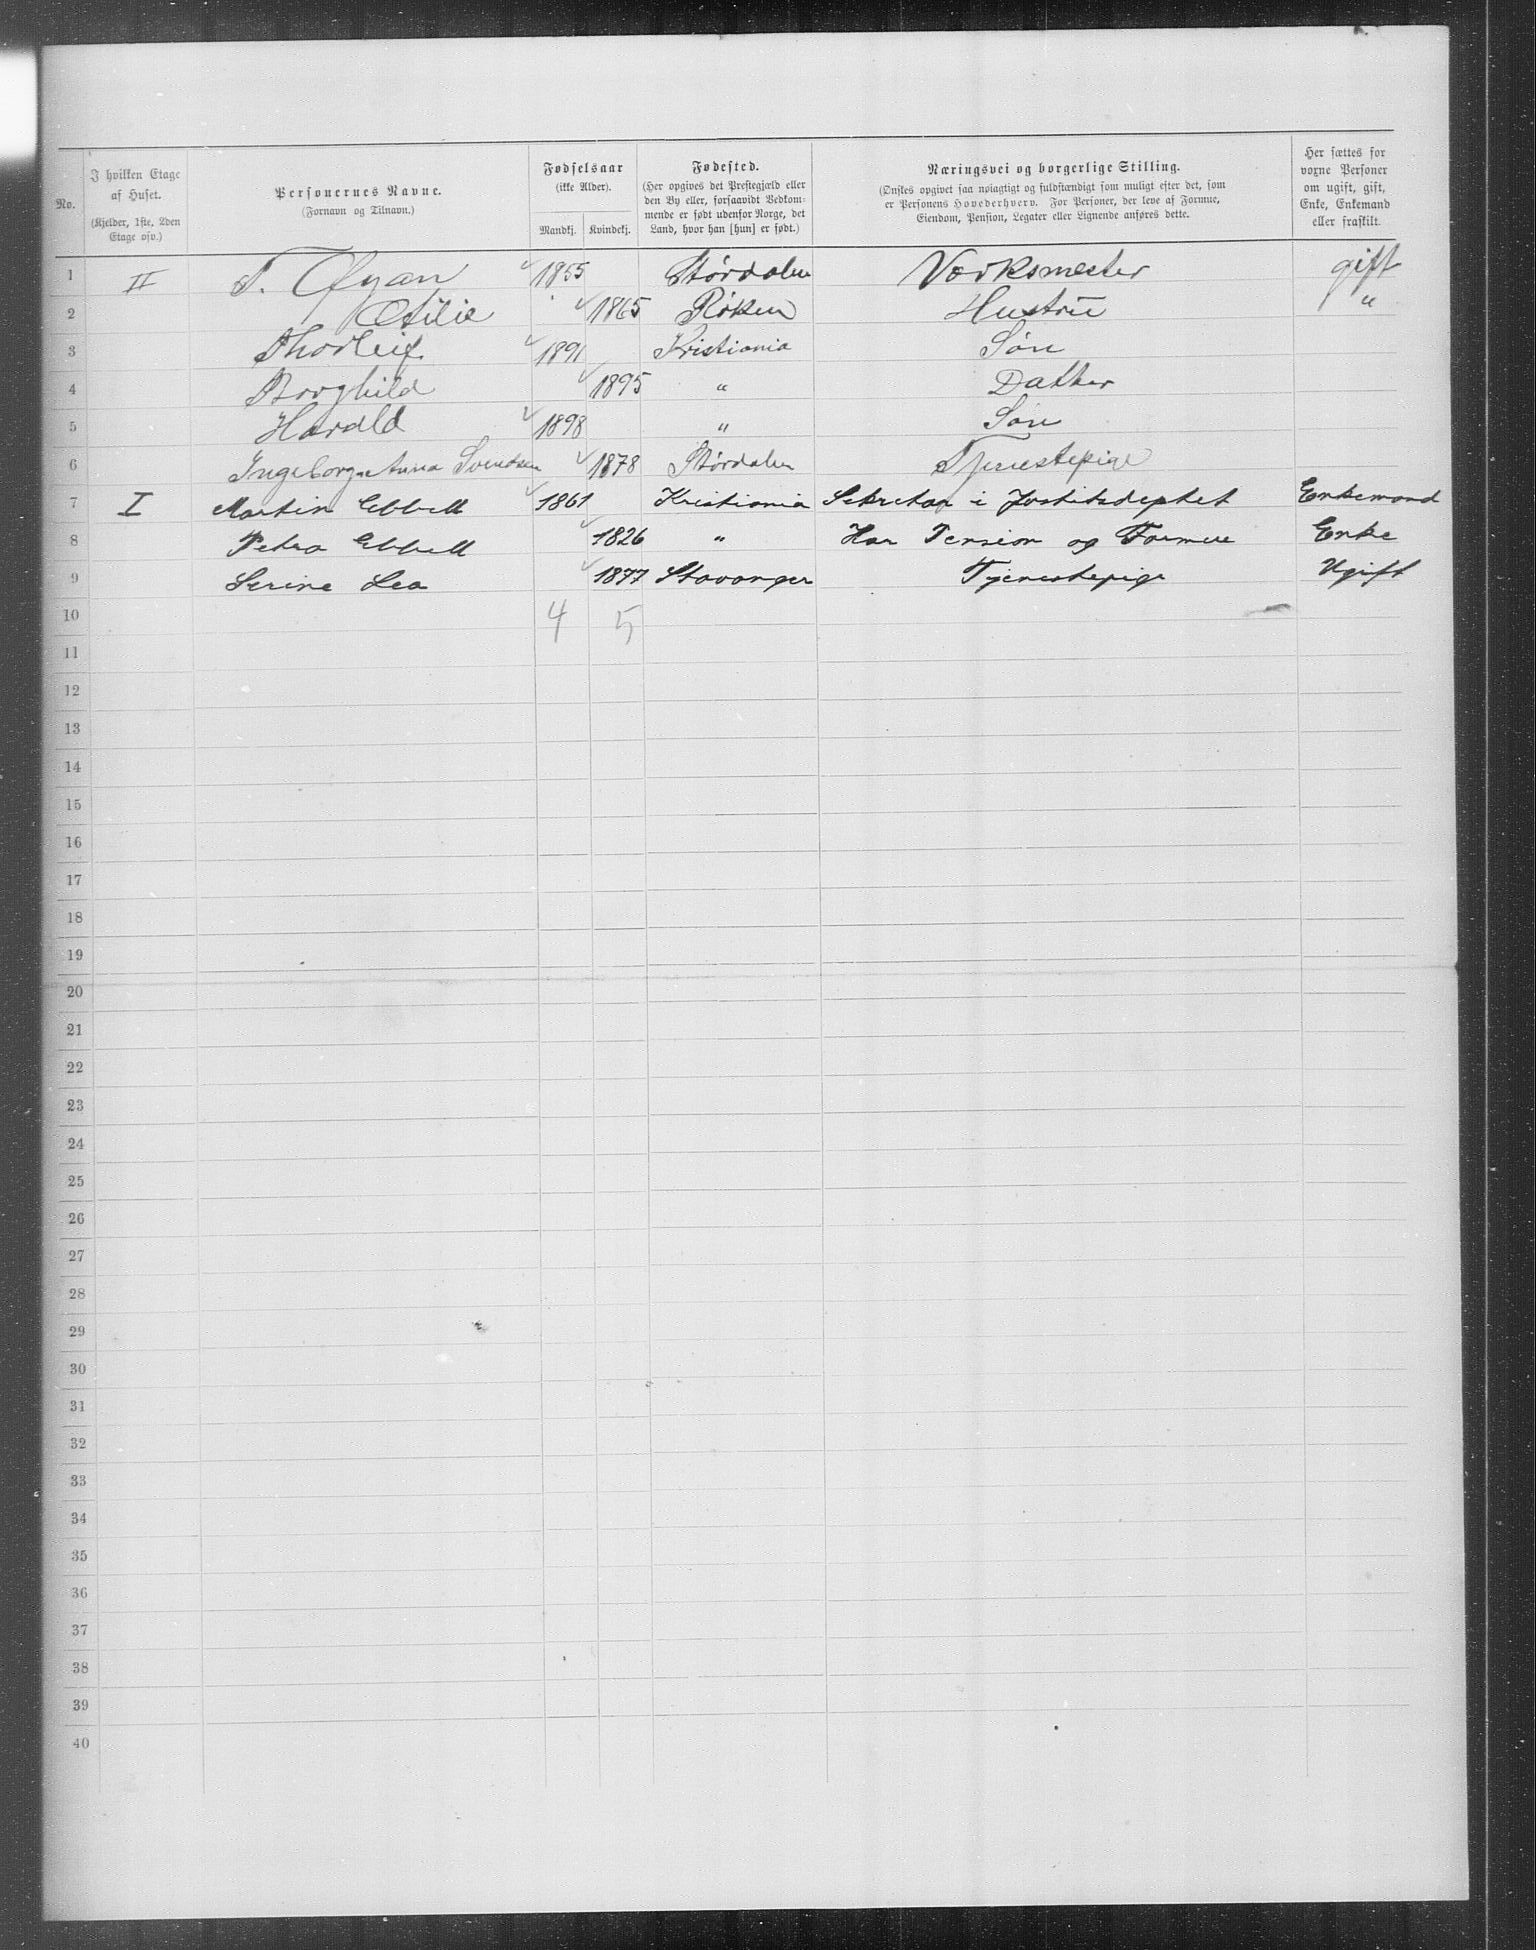 No.
I hvilken Etage af Huset. (Kjelder, 1ste, 2den Etage osv.)
Personernes Navne. (Fornavn og Tilnavn.)
Fødselsaar (ikke Alder). Mandkj. Kvindekj.
Fødested. (Her opgives det Prestegjæld eller den By eller, forsaavidt Vedkommende er født udenfor Norge, det Land, hvor han [hun] er født.)
Næringsvei og borgerlige Stilling. (Ønskes opgivet saa nøiagtigt og fuldstændigt som muligt efter det, som er Personens Hovederhverv. For Personer, der leve af Formue, Eiendom, Pension, Legater eller Lignende anføres dette.
Her sættes for voxne Personer om ugift, gift, Enke, Enkemand eller fraskilt.
1 II T. Øyan 1855 Størdalen Værksmester gift
2 Otilie 1865 Røken Hustru "
3 Thorleif 1891 Kristiania Søn
4 Borghild 1895 " Datter
5 Harald 1898 " Søn
6 Ingeborg Anna Svendsen 1878 Størdalen Tjenestepige
7 I Martin Ebbell 1861 Kristiania Sekretær i Justitsdeptet Enkemand
8 Petra Ebbell 1826 " Har Pension og Formue Enke
9 Serine Lea 1877 Stavanger Tjenestepige Ugift
10 4 5
11
12
13
14
15
16
17
18
19
20
21
22
23
24
25
26
27
28
29
30
31
32
33
34
35
36
37
38
39
40